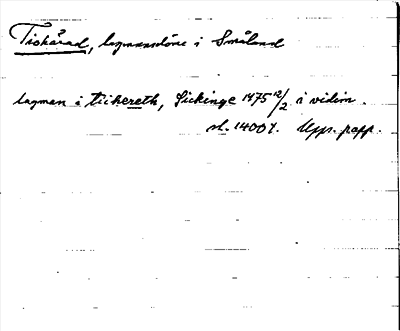 Tiohärad, lagmansdöme i Småland
lagman i tiikereth, Sickinge 1475 12/2 i vidim.
sl. 1400 t. Upps. papp.